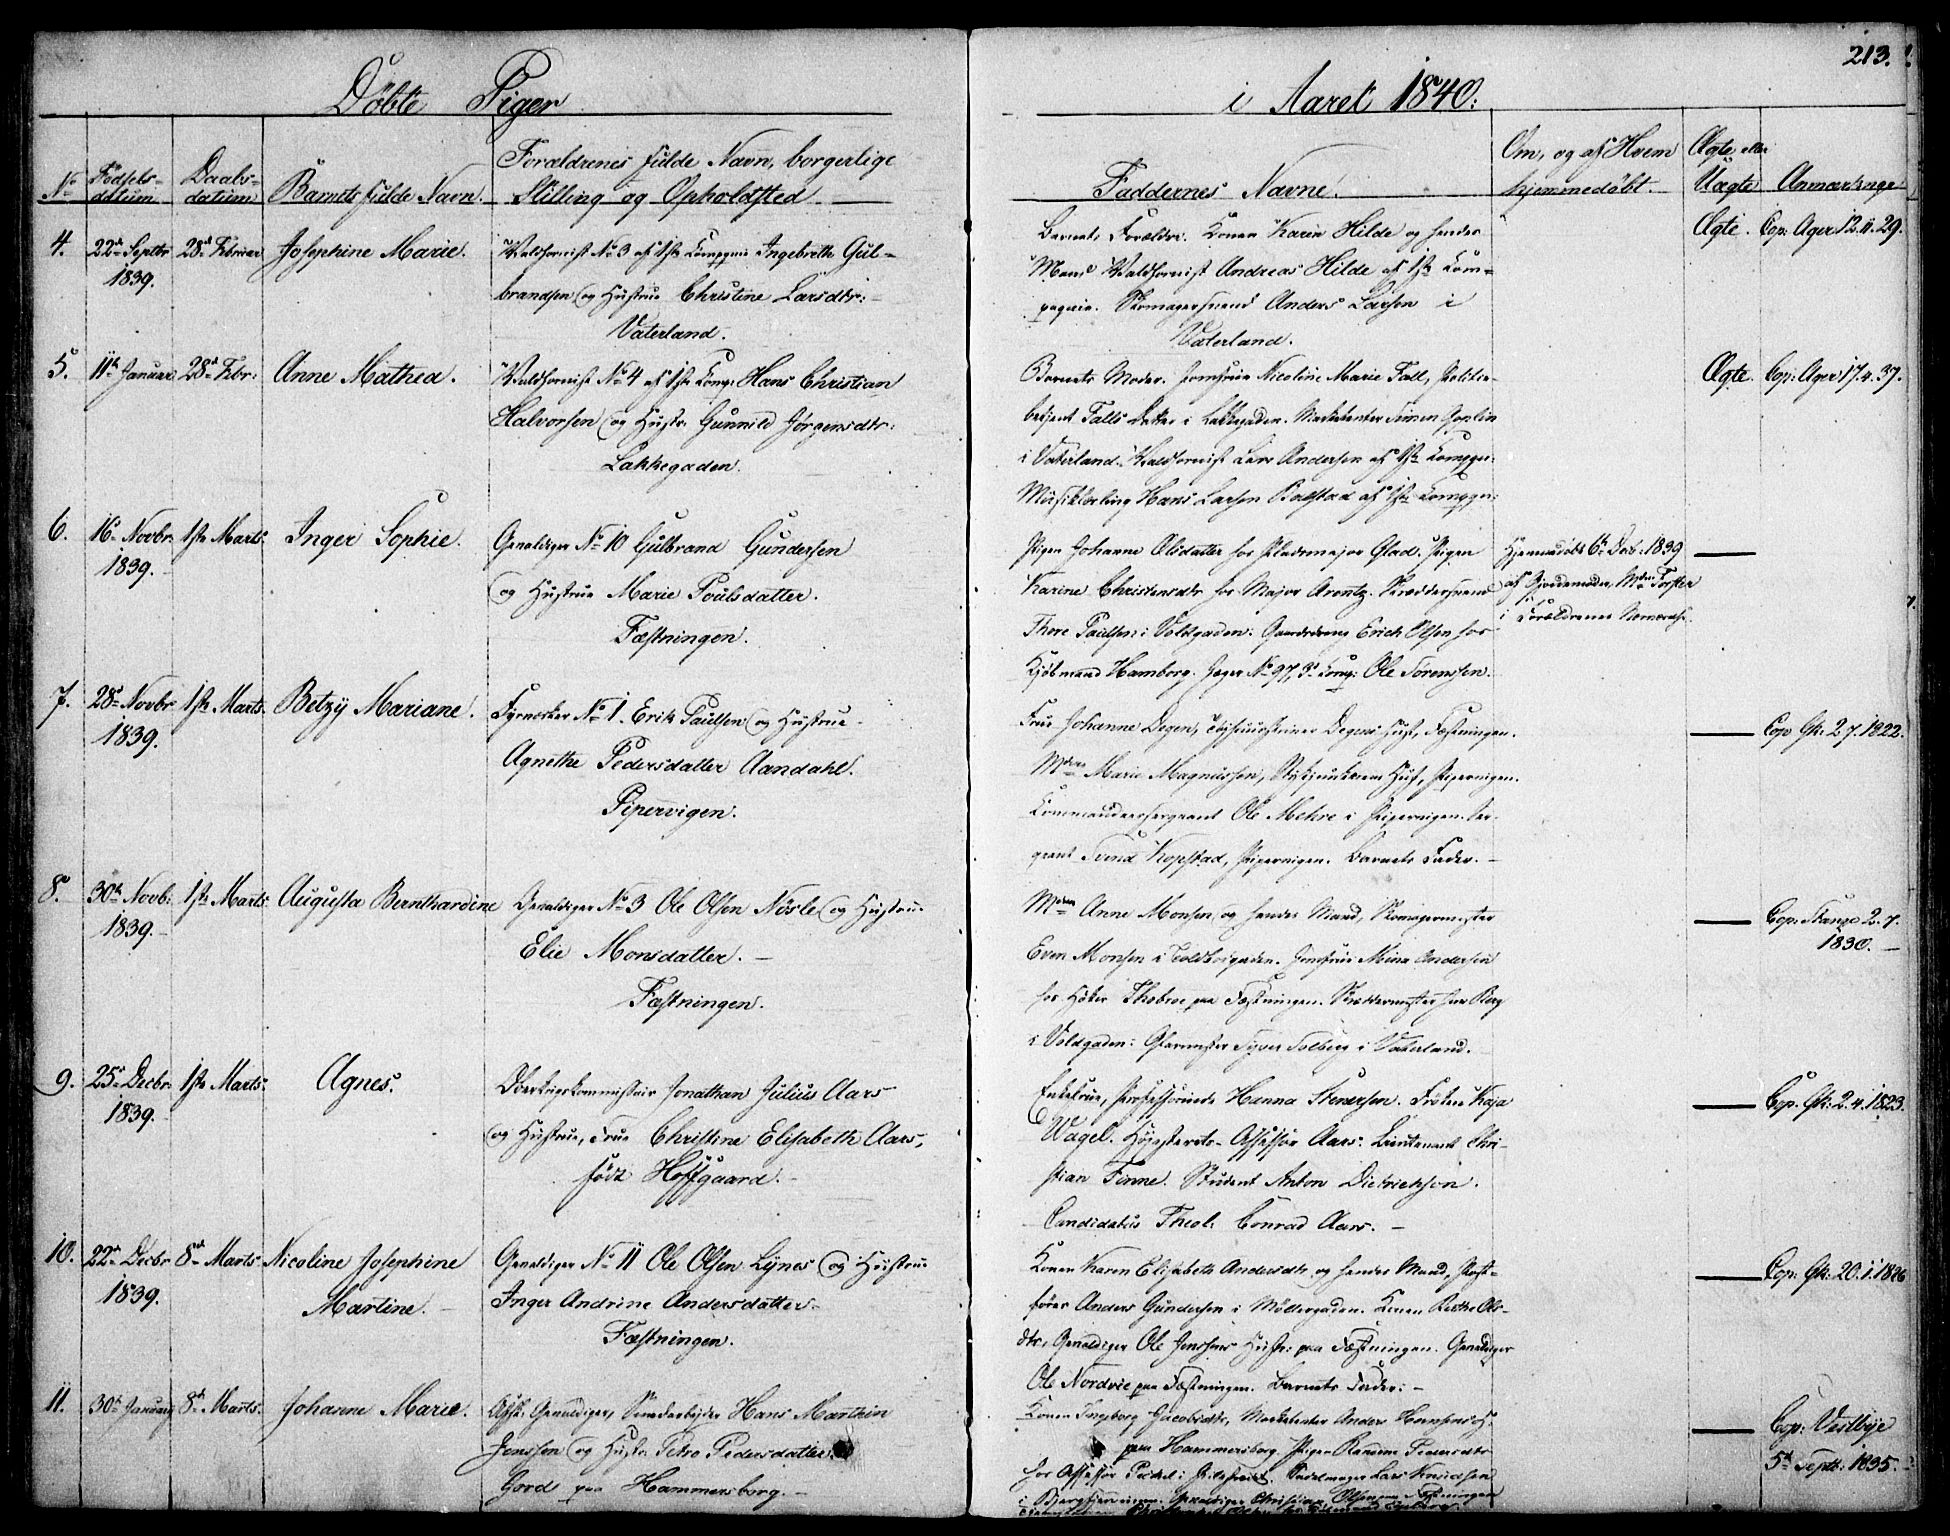 213.
Döbte Piger
i Aaret 1840.
No
Födsels-
datum
Daabs-
datum
Barnets fulde Navn.
Forældrenes fulde Navn, borgerlige
Stilling og Opholdsted
Faddernes Navne.
Om, og af Hvem
hjemmedöbt.
Ægte eller
Uægte
Anmærkninge
4.
22de Septbr
1839.
28de Februar
Josephine Marie.
Waldhornist No 3 af 1ste Compagnie Ingebreth Gul-
brandsen og Hustrue Christine Larsdtr:
Vaterland.
Barnets Forældre. Konen Karen Hilde og hendes
Mand Waldhornist Andreas Hilde af 1ste Com-
pagnie. Skomagersvend Anders Larsen i
Vaterland.
Ægte.
Cop: Ager 12.11.29.
5.
11te Januar
28de Febr:
Anne Mathea.
Waldhornist No 4 af 1ste Comp: Hans Christian
Halvorsen og Hustr: Gunnild Jörgensdtr:
Lakkegaden.
Barnets Moder. Jomfrue Nicoline Marie Fall, Politie-
betjent Falls Datter i Lakkegaden. Marketenter Simen
i Vaterland. Waldhornist Lars Andersen af 1ste Compgn:
Musiklærling Hans Larsen Balstad af 1ste Compgn:
Ægte.
Cop: Ager 17.4.37.
6.
16de Novbr
1839.
1ste Marts.
Inger Sophie.
Gevaldiger No 10 Gulbrand Gundersen
og Hustrue Marie Poulsdatter.
Fæstningen.
Pigen Johanne Olsdatter hos Pladsmajor Glad. Pigen
Karine Christensdtr hos Major Arentz. Skræddersvend
Thore Paulsen i Voldgaden. Gaardsdreng Erich Olsen hos
Kjöbmand Hamborg. Jæger No 97, 3d Comp: Ole Sörenssen.
Hjemmedöbt 6te Decb: 1839
af Gjordemoder, Mdme Forster
i Forældrenes
7.
28de Novbr
1839.
1ste Marts.
Betzy Mariane.
Fyrværker No 1. Erik Paulsen og Hustrue
Agnethe Pedersdatter Aandahl.
Pipervigen.
Frue Johanne Degen, Degens Hust, Fæstningen.
Mdme Marie Magnussen, Stykjunkerens Hust, Pipervigen.
Kommandeersergeant Ole Mehre i Pipervigen. Ser-
geant Svend Kopstad, Pipervigen. Barnets Fader.
Cop Gk: 2 7. 1822.
8.
30te Novb:
1839.
1ste Marts.
Augusta Bernthardine
Gevaldiger No 3 Ole Olsen Nösle og Hustrue
Elie Monsdatter.
Fæstningen.
Mdme Anne Monsen og hendes Mand, Skomagermester
Even Monsen i Toldbodgaden. Jomfrue Mina Andersen
hos Höker Thobroe paa Fæstningen. Skræddermester Berg
i Voldgaden. Glarmester Syver Solberg i Vaterland.
Cop: 2. 7.
1830.
9.
25de Decbr
1839.
1ste Marts.
Agnes.
Overkrigskommissair Jonathan Julius Aars
og Hustrue, Frue Christine Elisabeth Aars,
född Hoffgaard.
Enkefrue, Professorinde Hanna Stenersen. Fröken Kaja
Wagel. Höiesterets-Assessor Aars. Lieutenant Chri-
stian Finne. Student Anton Dietrichson.
Candidatus Theol: Conrad Aars.
Cop. Gk: 2. 4. 1823.
10.
22de Decbr
1839.
8de Marts
Nicoline Josephine
Martine.
Gevaldiger No 11 Ole Olsen Lynes og Hustrue
Inger Andrine Andersdatter
Fæstningen.
Konen Karen Elisabeth Andersdtr og hendes Mand, Post-
förer Anders Gundersen i Möllergaden. Konen Berthe Ols-
dtr, Gevaldiger Ole Jenssens Hustr: paa Fæstningen. Gevaldiger
Ole Nordvie paa Fæstningen. Barnets Fader.
Cop. Gk: 20. 1. 1826
11.
30te Januar
8de Marts.
Johanne Marie.
Afsk. Gevaldiger, Hans Marthin
Jenssen og Hustr: Petro Pedersdatter
Gord paa Hammersborg.
Konen Ingeborg Jacobsdtr, Marketenter Anders Hansens H.
paa Hammersborg. Pigen Pedersdtr
hos Assessor Lars Knudsen
Gevaldiger Christian Olsen paa Fæstningen
Cop: Vestbye
5te Septb: 1835.